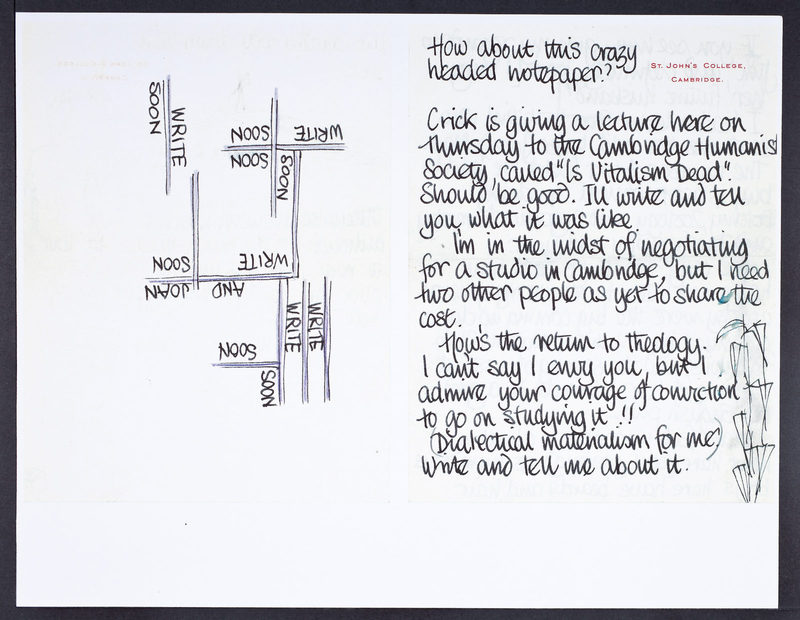 SOON
WRITE
SOON
WRITE
SOON
SOON
SOON
WRITE
SOON
JOAN
AND
WRITE
WRITE
SOON
SOON
How about this crazy
headed notepaper?
ST. JOHN'S COLLEGE,
CAMBRIDGE.
Crick is giving a lecture here on
Thursday to the Cambridge Humanist
Society, called "Is Vitalism Dead".
Should be good. I'll write and tell
you what it was like.
I'm in the midst of negotiating
for a studio in Cambridge, but I need
two other people as yet to share the
cost.
How's the return to theology.
I can't say I envy you, but I
admire your courage of conviction
to go on studying it!!
(Dialectical materialism for me)
Write and tell me about it.